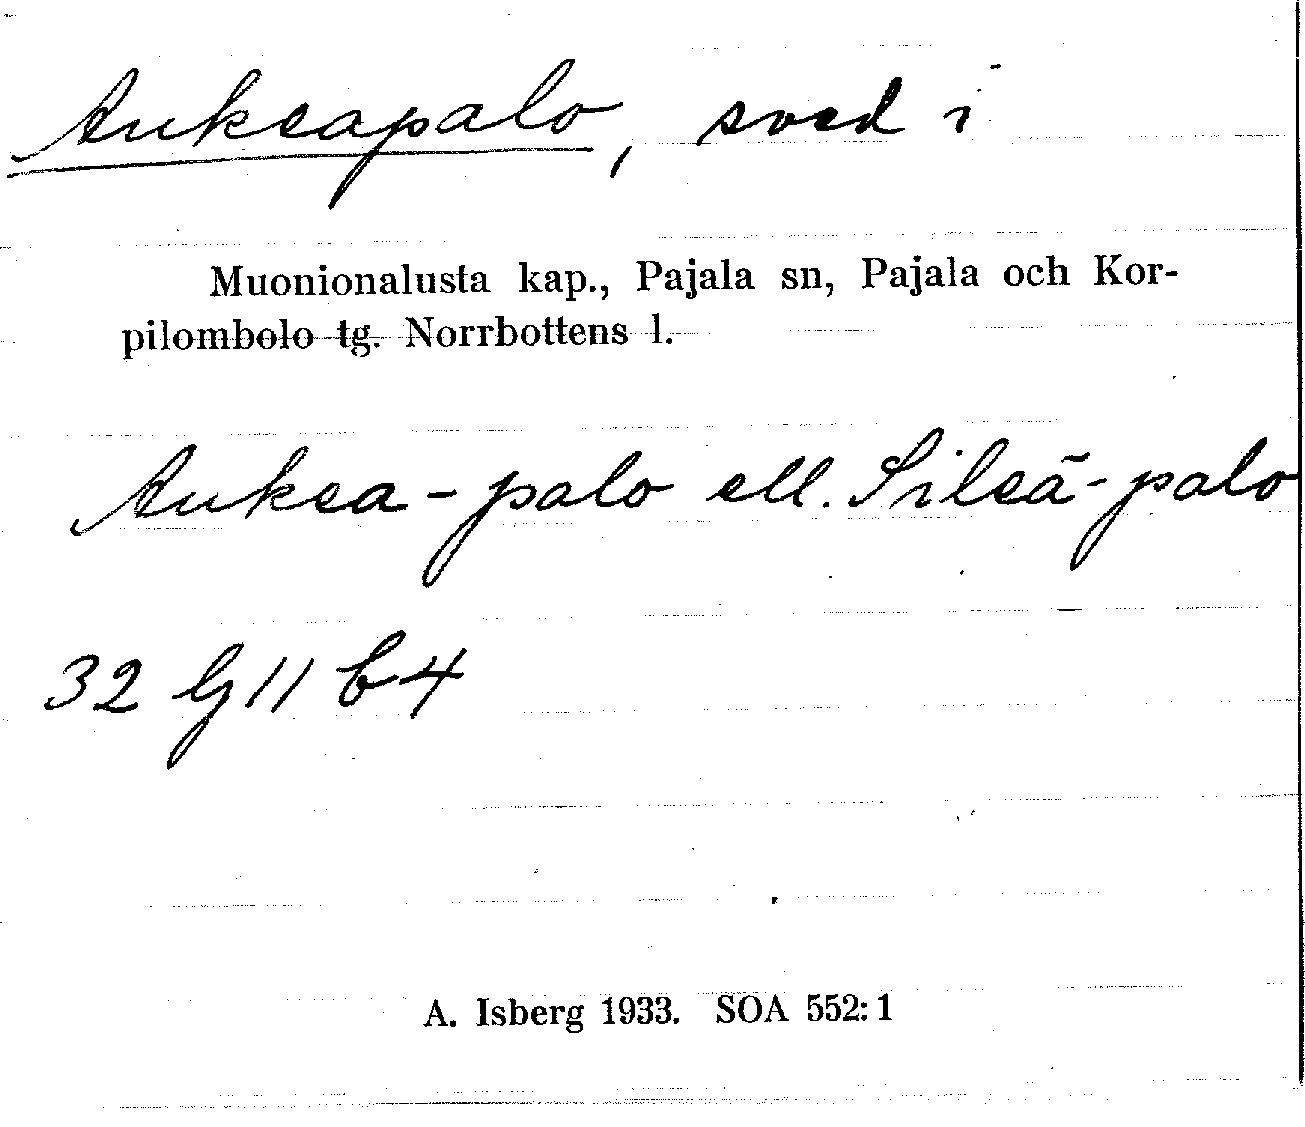 Aukeapalo, sved i
Muonionalusta kap., Pajala sn, Pajala och Kor-
pilombolo tg. Norrbottens l.
Aukea-palo ell. Sileä-palo
32 G 11 b 4
A. Isberg 1933. SOA 552:1